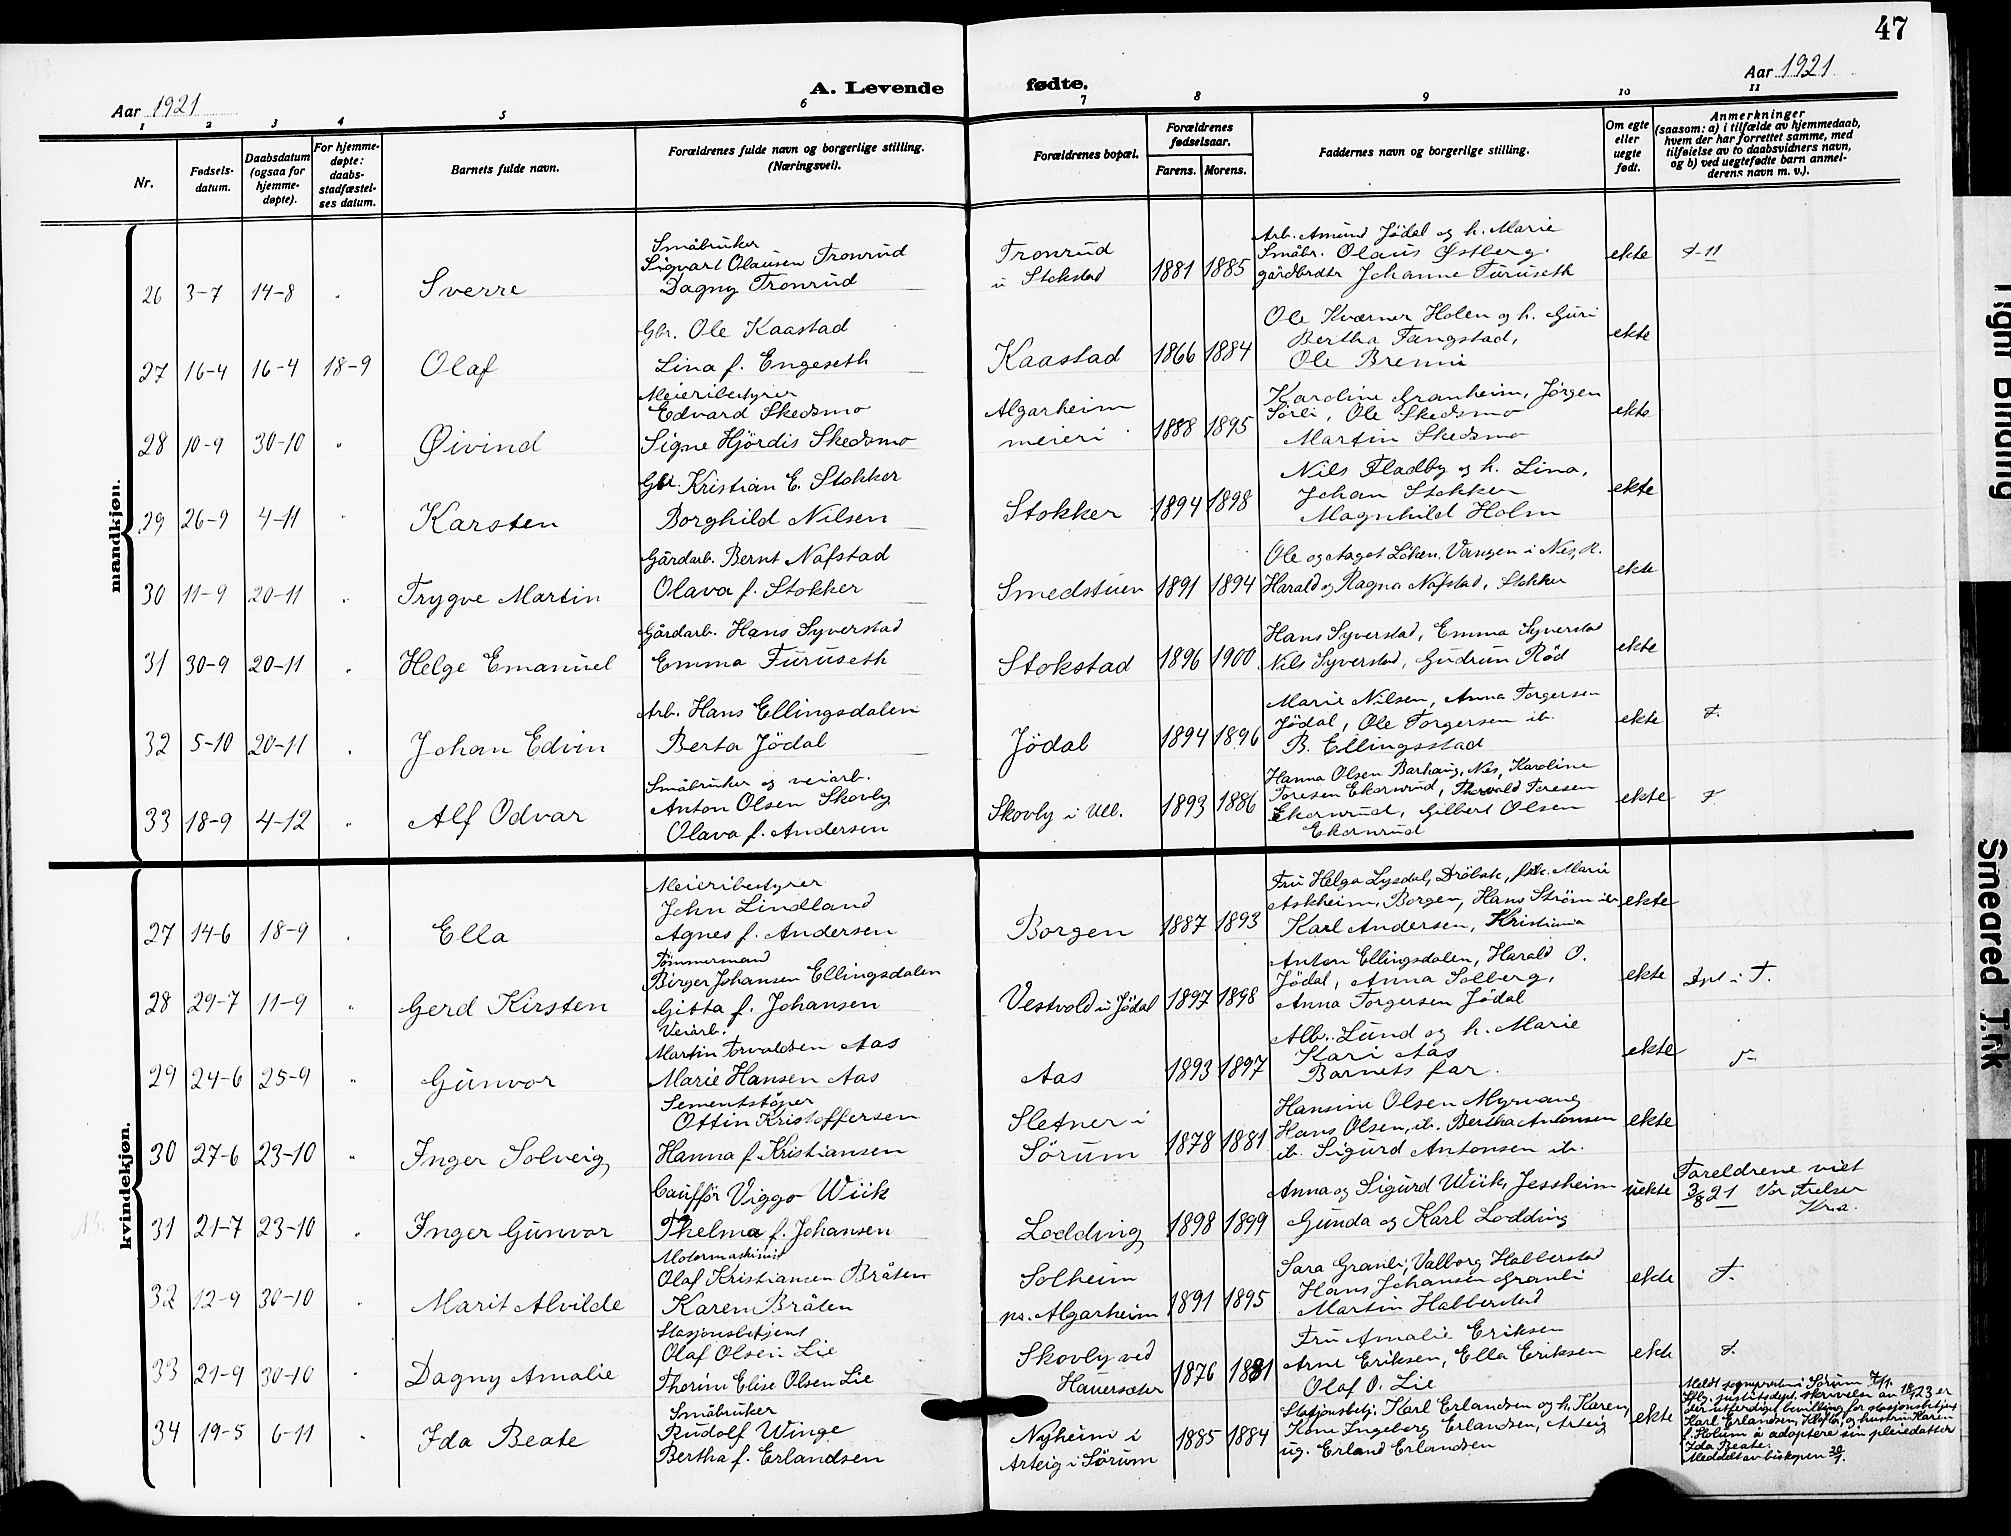 47
Aar 1921
A. Levende fødte.
Aar 1921
1 2 3 4 5 6 7 8 9 10 11
Nr.
Fødsels-
datum.
Daabsdatum
(ogsaa for
hjemme-
døpte).
For hjemme-
døpte:
daabs-
stadfæstel-
ses datum.
Barnets fulde navn.
Forældrenes fulde navn og borgerlige stilling.
(Næringsvei).
Forældrenes bopæl.
Forældrenes
fødselsaar.
Farens. Morens.
Faddernes navn og borgerlige stilling.
Om egte
eller
uegte
født.
Anmerkninger
(saasom: a) i tilfælde av hjemmedaab,
hvem der har forrettet samme, med
tilføielse av to daabsvidners navn,
og b) ved uegtefødte barn anmel-
derens navn m. v.).
mandkjøn.
26 3-7 14-8 Sverre
Småbruker
Sigvart Olausen Tronrud
Dagny Tronrud
Tronrud
u Stokstad
1881 1885
Arb. Amund Jödal og h. Marie
Småbr. Olaus Østberg.
gårdbrdtr Johanne Furuseth
ekte
27 16-4 16-4 18-9 Olaf
Gbr. Ole Kaastad
Lina f. Engeseth
Kaastad 1866 1884
Ole Kværner Holen og h. Guri
Bertha Fangstad,
Ole Brenni
ekte
28 10-9 30-10 " Øivind
Meieribestyrer
Edvard Skedsmo
Signe Hjördis Skedsmo
Algarheim
meieri
1888 1895
Karoline Granheim, Jörgen
Sörli, Ole Skedsmo
Martin Skedsmo
ekte
29 26-9 4-11 Karsten
Gbr. Kristian E. Stokker
Borghild Nilsen
Stokker 1894 1898
Nils Fladby og h. Lina,
Johan Stokker
Magnhild Holm
ekte
30 11-9 20-11 Trygve Martin
Gårdarb. Bernt Nafstad
Olava f. Stokker
Smedstuen 1891 1894
Ole og Aagot Löken, Vangen i Nes, R.
Harald og Ragna Nafstad, Stokker
ekte
31 30-9 20-11 Helge Emanuel
Gårdarb. Hans Syverstad
Emma Furuseth
Stokstad 1896 1900
Hans Syverstad, Emma Syverstad
Nils Syverstad, Gudrun Röd
ekte
32 5-10 20-11 Johan Edvin
Arb. Hans Ellingsdalen
Berta Jödal
Jödal 1894 1896
Marie Nilsen, Anna Torgersen
Jödal, Ole Torgersen ib.
B. Ellingsstad
ekte
33 18-9 4-12 " Alf Odvar
Småbruker og veiarb.
Anton Olsen Skovly
Olava f. Andersen
Skovly i Ull. 1893 1886
Hanna Olsen Barhaug, Nes, Karoline
Toresen Ekornrud, Thorvald Toresen
Ekornrud, Gilbert Olsen
Ekornrud
ekte
kvindekjøn.
27 14-6 18-9 Ella
Meieribestyrer
John Lindland
Agnes f. Andersen
Borgen 1887 1893
Fru Helga Lysdal, Dröbak, frk. Marie
Askheim, Borgen, Hans Ström ib
Karl Andersen, Kristiania
ekte
28 29-7 11-9 " Gerd Kirsten
Tömmermand
Birger Johansen Ellingsdalen
Gitta f. Johansen
Vestvold u Jödal 1897 1898
Anton Ellingsdalen, Harald O.
Jödal, Anna Solberg,
Anna Torgersen Jödal
ekte
Dpt i F.
29 24-6 25-9 " Gunvor
Veiarb.
Martin Torvaldsen Aas
Marie Hansen Aas
Aas 1893 1897
Alb. Lund og h. Marie
Kari Aas
Barnets far.
ekte
30 27-6 23-10 " Inger Solveig
Sementstöper
Ottin Kristoffersen
Hanna f Kristiansen
Sletner i
Sörum
1878 1881
Hansine Olsen Myrvang
Hans Olsen, ib. Bertha Antonsen
ib. Sigurd Antonsen ib.
ekte
31 21-7 23-10 Inger Gunvor
Caufför Viggo Wiik
Thelma f. Johansen
Lodding 1898 1899
Anna og Sigurd Wiik, Jessheim
Gunda og Karl Lodding
uekte
Foreldrene viet
3/8 21 Vor Frelser
Kra.
32 12-9 30-10 Marit Alvilde
Motormaskinist
Olaf Kristiansen Bråten
Karen Bråten
Solheim
pr. Algarheim
1891 1895
Sara Granli, Valborg Halberstad
Hans Johansen Granli
Martin Halberstad
ekte
33 21-9 30-10 Dagny Amalie
Stasjonsbetjent
Olaf Olsen Lie
Thorine Elise Olsen Lie
Skovly ved
Hauerseter
1876 1881
Fru Amalie Eriksen
Arne Eriksen, Ella Eriksen
Olaf O. Lie
ekte
34 19-5 6-11 Ida Beate
Småbruker
Rudolf Winge
Bertha f. Erlandsen
Nyheim i
Arteig i Sörum
1885 1884
Stasjonsbetj. Karl Erlandsen og h. Karen,
Kone Ingeborg Erlandsen, Arteig
ug. Erland Erlandsen
ekte
Meldt sogneprsten i Sörum
justitsdept. skrivelse av 18/1 23 er
der utferdiget bevilling for stasjonsbetjent
Karl Erlandsen, og hustru Karen
f. Holum å adoptere sin pleiedatter
Ida Beate.
Meddelt av biskopen
Smeared Tink